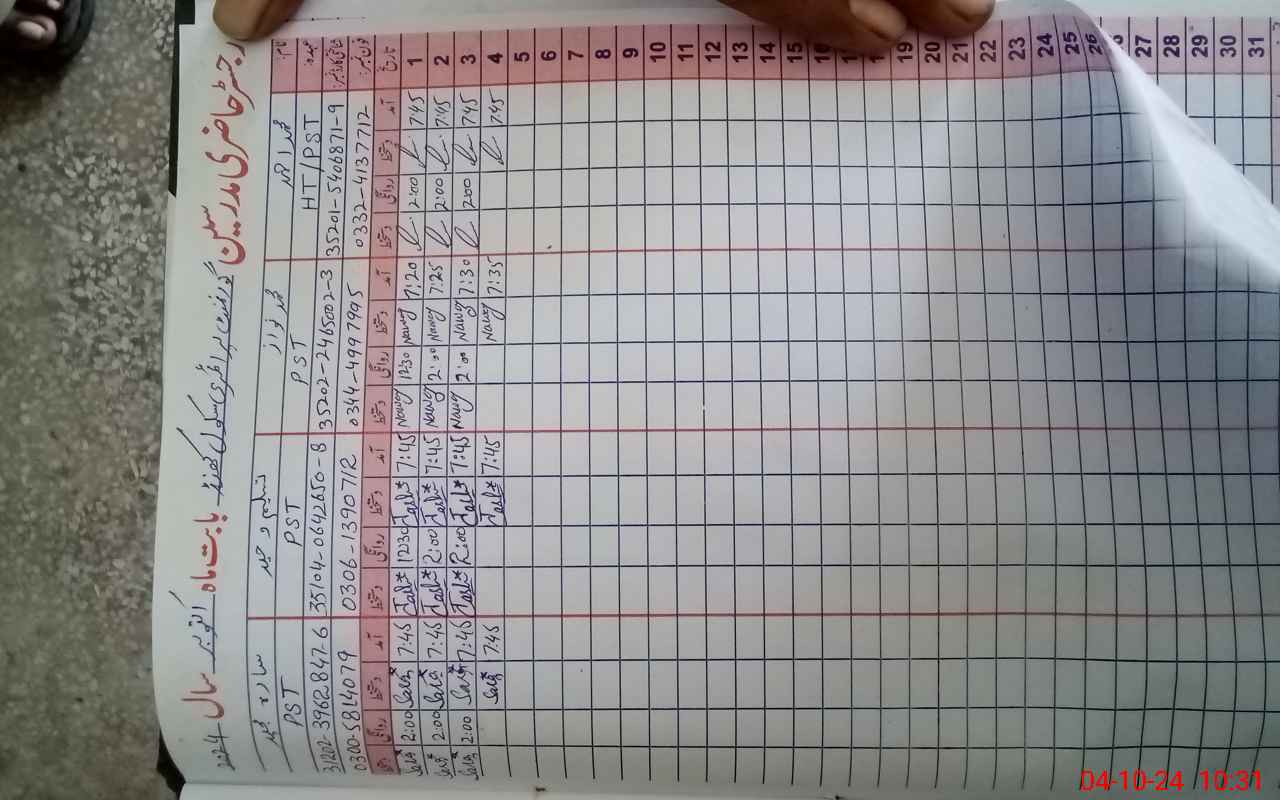 رجسٹر حاضری مدرسین سکول گورنمنٹ پرائمری سکول بابت ماہ اکتوبر سال 2024
نام محمد اکرم محمد نواز ساره مجید
عہدہ HT/PST PST PST PST
35201-5406871-9 35202-2465002-3 35104-0642650-8 31202-3962847-6
0332-4137712 0344-4997995 0306-1390712 0300-5814079
تاریخ آمد دستخط روانگی دستخط آمد دستخط روانگی دستخط آمد دستخط روانگی دستخط آمد دستخط روانگی دستخط
1 7:45 2:00 7:20 Nawaz 12:30 Nawaz 7:45 12:30 7:45 2:00
2 7:45 2:00 7:25 Nawaz 2:00 Nawaz 7:45 2:00 7:45 2:00
3 7:45 2:00 7:30 Nawaz 2:00 Nawaz 7:45 2:00 7:45 2:00
4 7:45 7:35 Nawaz 7:45 7:45
5
6
7
8
9
10
11
12
13
14
15
16
19
20
21
22
23
24
25
26
27
28
29
30
31
04-10-24 10:31